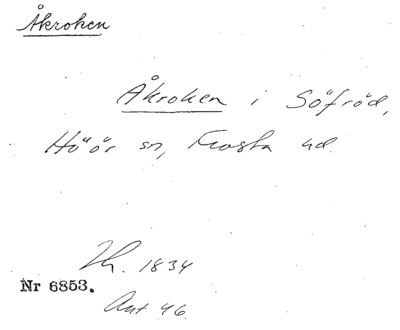 Åkroken
Åkroken i Söfröd,
Höör sn, Frosta hd
Th. 1834
Nr 6853.
Ant 46